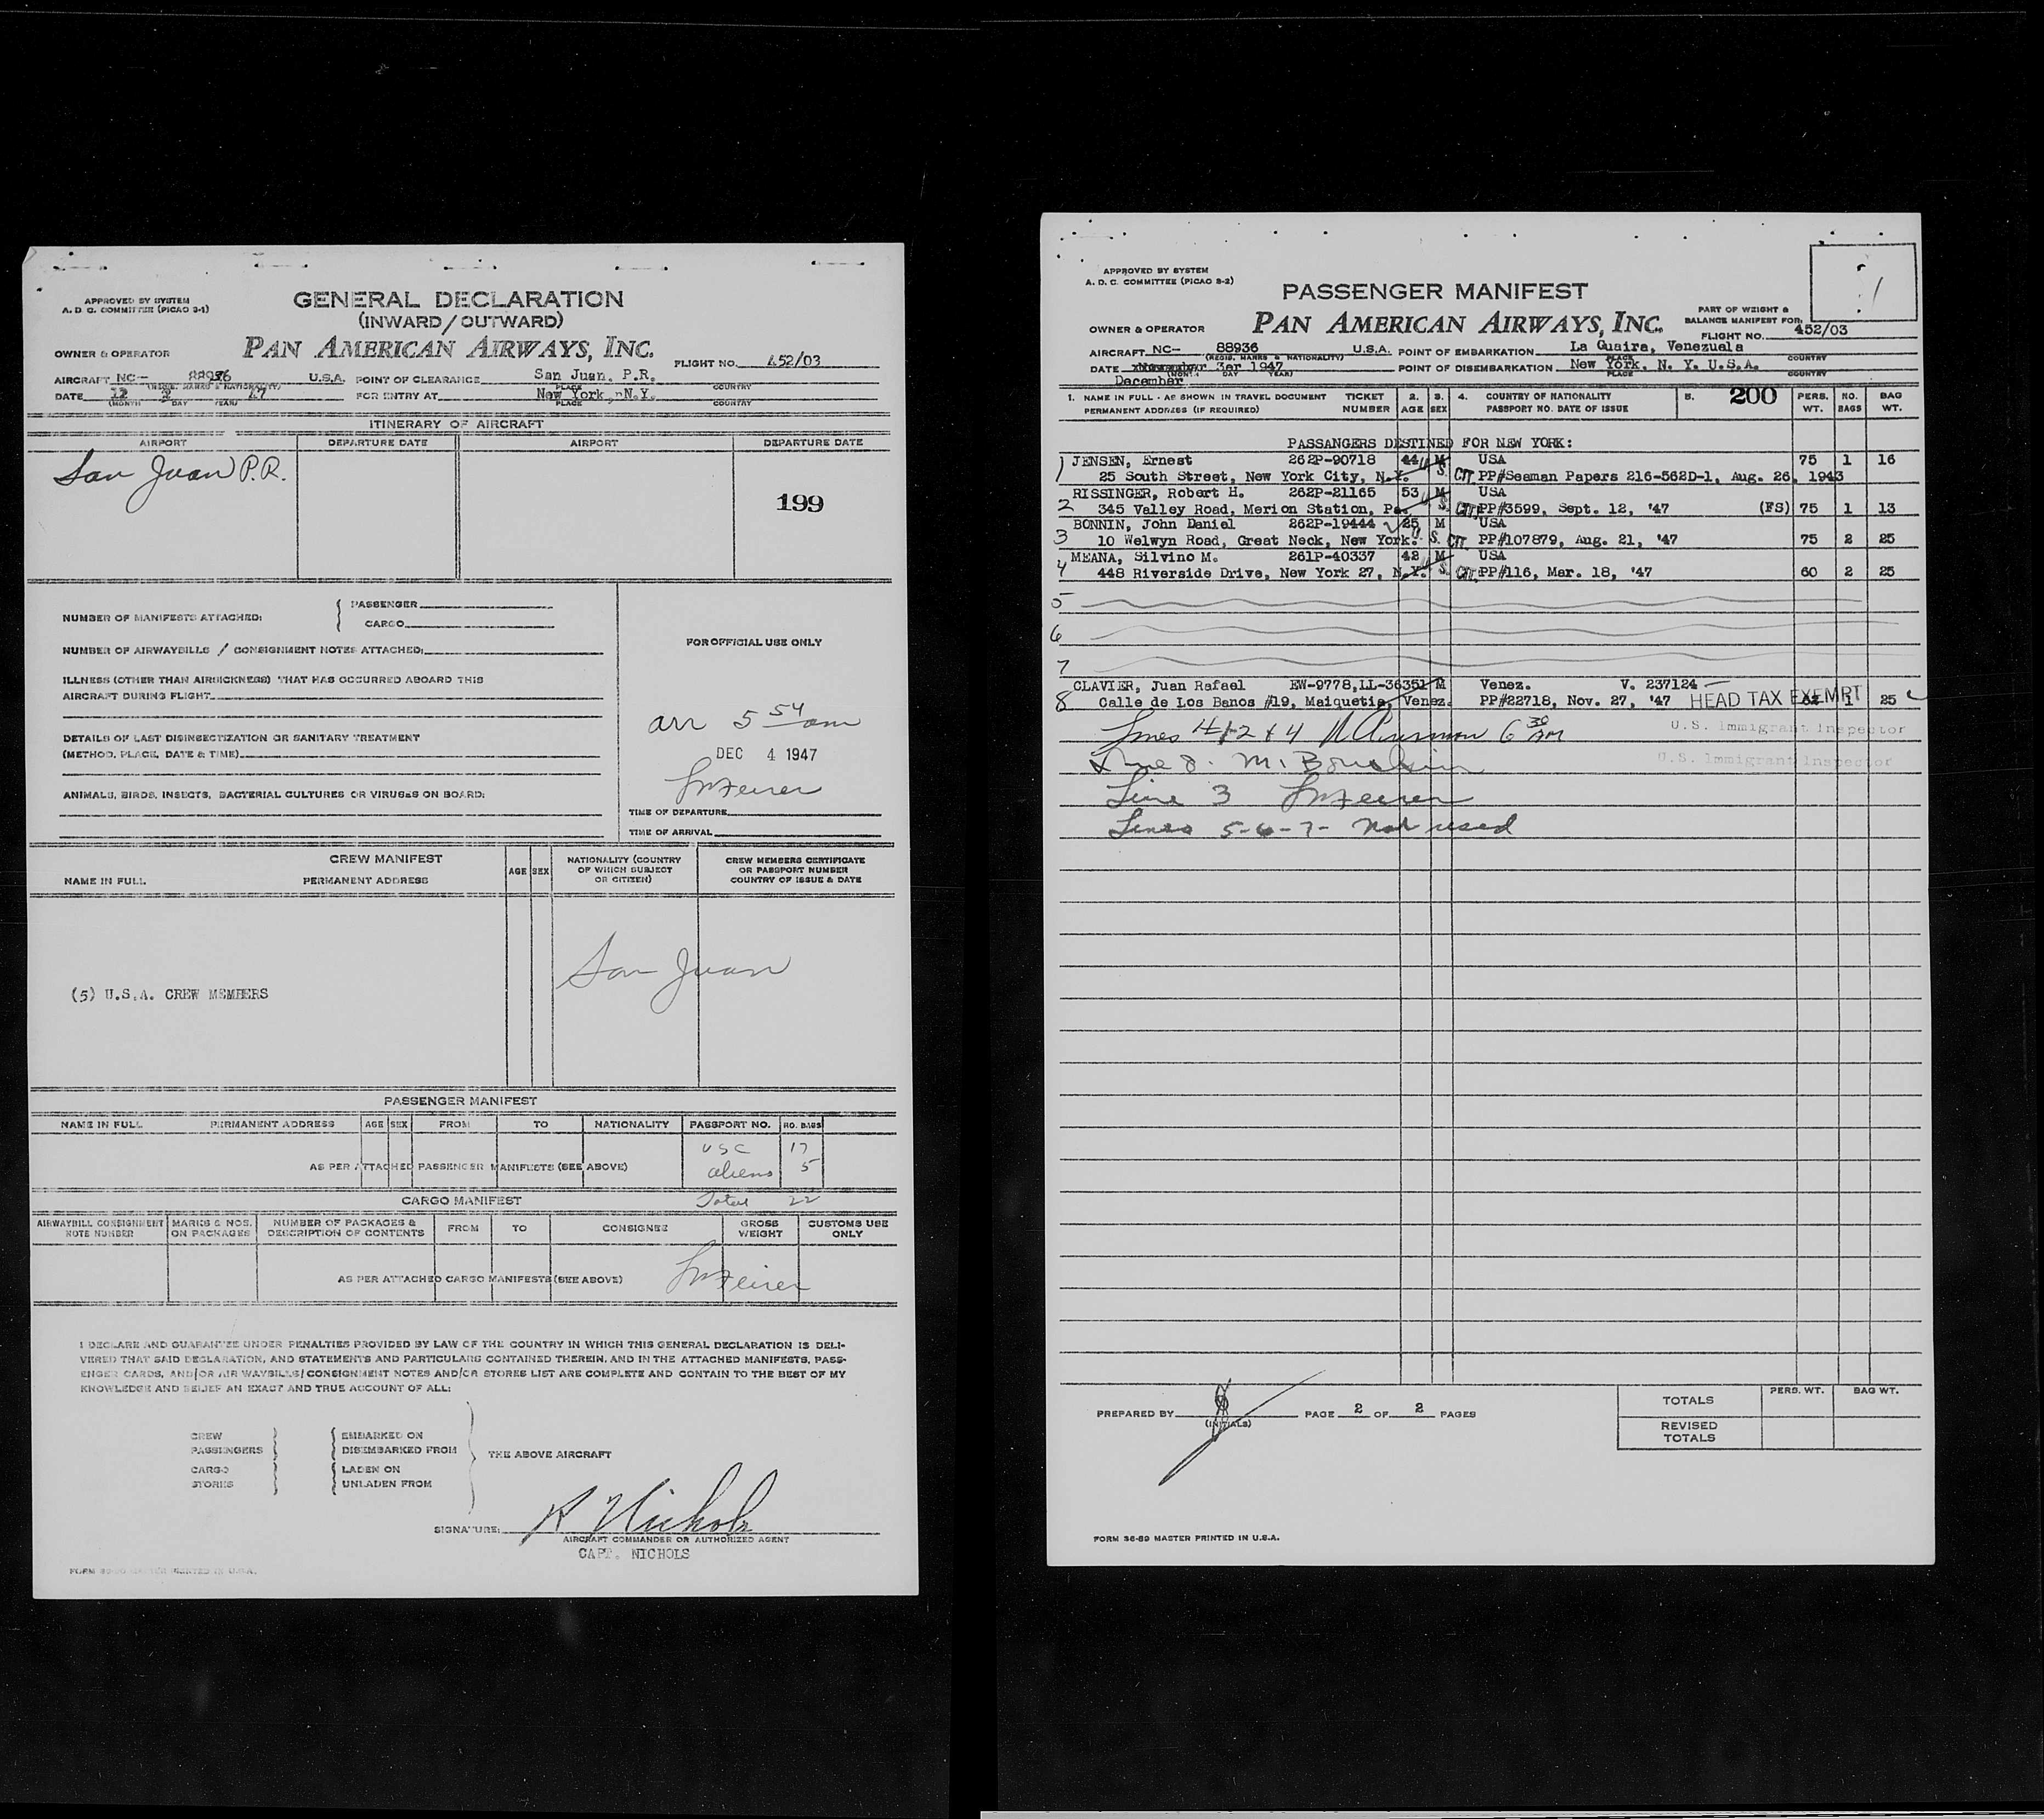 APPROVED BY SYSTEM
A. D. C. COMMITTEE (PICAO 3-1)
GENERAL DECLARATION
(INWARD/OUTWARD)
OWNER & OPERATOR
PAN AMERICAN AIRWAYS, INC.
FLIGHT NO. 452/03
AIRCRAFT NC- 88936 U.S.A. POINT OF CLEARANCE San Juan, P.R.
(REGIS. MARKS & NATIONALITY) PLACE COUNTRY
DATE 12 47 FOR ENTRY AT New York, N.Y.
(MONTH DAY YEAR) PLACE COUNTRY
ITINERARY OF AIRCRAFT
AIRPORT DEPARTURE DATE AIRPORT DEPARTURE DATE
San Juan P.R.
199
NUMBER OF MANIFESTS ATTACHED: PASSENGER
CARGO
NUMBER OF AIRWAYBILLS / CONSIGNMENT NOTES ATTACHED:
ILLNESS (OTHER THAN AIRSICKNESS) THAT HAS OCCURRED ABOARD THIS
AIRCRAFT DURING FLIGHT
DETAILS OF LAST DISINSECTIZATION OR SANITARY TREATMENT
(METHOD, PLACE, DATE & TIME)
ANIMALS, BIRDS, INSECTS, BACTERIAL CULTURES OR VIRUSES ON BOARD:
FOR OFFICIAL USE ONLY
arr 5 54 am
DEC 4 1947
TIME OF DEPARTURE
TIME OF ARRIVAL
CREW MANIFEST
NAME IN FULL PERMANENT ADDRESS AGE SEX NATIONALITY (COUNTRY OF WHICH SUBJECT OR CITIZEN) CREW MEMBERS CERTIFICATE OR PASSPORT NUMBER COUNTRY OF ISSUE & DATE
San Juan
(5) U.S.A. CREW MEMBERS
PASSENGER MANIFEST
NAME IN FULL PERMANENT ADDRESS AGE SEX FROM TO NATIONALITY PASSPORT NO. NO. BAGS
USC 17
AS PER ATTACHED PASSENGER MANIFESTS (SEE ABOVE) aliens 5
CARGO MANIFEST Total 22
AIRWAYBILL CONSIGNMENT NOTE NUMBER MARKS & NOS. ON PACKAGES NUMBER OF PACKAGES & DESCRIPTION OF CONTENTS FROM TO CONSIGNEE GROSS WEIGHT CUSTOMS USE ONLY
AS PER ATTACHED CARGO MANIFESTS (SEE ABOVE)
I DECLARE AND GUARANTEE UNDER PENALTIES PROVIDED BY LAW OF THE COUNTRY IN WHICH THIS GENERAL DECLARATION IS DELI-
VERED THAT SAID DECLARATION, AND STATEMENTS AND PARTICULARS CONTAINED THEREIN, AND IN THE ATTACHED MANIFESTS, PASS-
ENGER CARDS, AND/OR AIR WAYBILLS/CONSIGNMENT NOTES AND/OR STORES LIST ARE COMPLETE AND CONTAIN TO THE BEST OF MY
KNOWLEDGE AND BELIEF AN EXACT AND TRUE ACCOUNT OF ALL:
CREW EMBARKED ON
PASSENGERS DISEMBARKED FROM THE ABOVE AIRCRAFT
CARGO LADEN ON
STORES UNLADEN FROM
SIGNATURE: Nichols
AIRCRAFT COMMANDER OR AUTHORIZED AGENT
CAPT. NICHOLS
APPROVED BY SYSTEM
A. D. C. COMMITTEE (PICAO 3-2)
PASSENGER MANIFEST
PART OF WEIGHT &
BALANCE MANIFEST FOR:
OWNER & OPERATOR PAN AMERICAN AIRWAYS, INC. FLIGHT NO. 452/03
AIRCRAFT NC- 88936 U.S.A. POINT OF EMBARKATION La Guaira, Venezuala
(REGIS. MARKS & NATIONALITY) PLACE COUNTRY
DATE 3er 1947 POINT OF DISEMBARKATION New York, N. Y. U.S.A.
December (MONTH DAY YEAR) PLACE COUNTRY
1. NAME IN FULL - AS SHOWN IN TRAVEL DOCUMENT TICKET 2. 3. 4. COUNTRY OF NATIONALITY 5. 200 PERS. NO. BAG
PERMANENT ADDRESS (IF REQUIRED) NUMBER AGE SEX PASSPORT NO. DATE OF ISSUE WT. BAGS WT.
PASSANGERS DESTINED FOR NEW YORK:
1 JENSEN, Ernest 262P-90718 44 M USA 75 1 16
25 South Street, New York City, N.Y. U.S. CIT. PP#Seaman Papers 216-562D-1, Aug. 26, 1943
2 RISSINGER, Robert H. 262P-21165 53 M USA
345 Valley Road, Merion Station, Pa. U.S. CIT. PP#3599, Sept. 12, '47 (FS) 75 1 13
3 BONNIN, John Daniel 262P-19444 25 M USA
10 Welwyn Road, Great Neck, New York. U.S. CIT. PP#107879, Aug. 21, '47 75 2 25
4 MEANA, Silvino M. 261P-40337 42 M USA
448 Riverside Drive, New York 27, N.Y. U.S. CIT. PP#116, Mar. 18, '47 60 2 25
5
6
7
8 CLAVIER, Juan Rafael EW-9778,LL-36351 M Venez. V. 237124
Calle de Los Banos #19, Maiquetia, Venez. PP#22718, Nov. 27, '47 HEAD TAX EXEMPT 62 1 25
Lines 1-2 & 4 6 30 AM
U.S. Immigrant Inspector
Line 8. M.
U.S. Immigrant Inspector
Line 3
Lines 5-6-7- Not used
PREPARED BY (INITIALS) PAGE 2 OF 2 PAGES
PERS. WT. BAG WT.
TOTALS
REVISED TOTALS
FORM 36-89 MASTER PRINTED IN U.S.A.